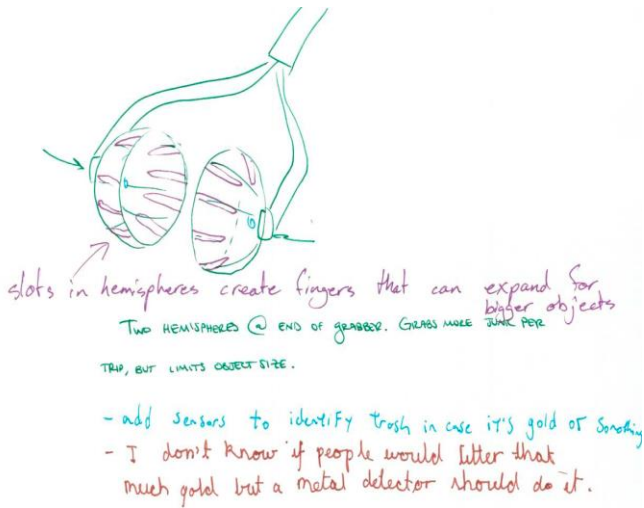 slots in hemispheres create fingers that can expand for
bigger objects
TWO HEMISPHERES @ END OF GRABBER. GRABS MORE JUNK PER
TRIP, BUT LIMITS OBJECT SIZE.
- add sensors to identify trash in case it's gold or something
- I don't know if people would litter that
much gold but a metal detector should do it.